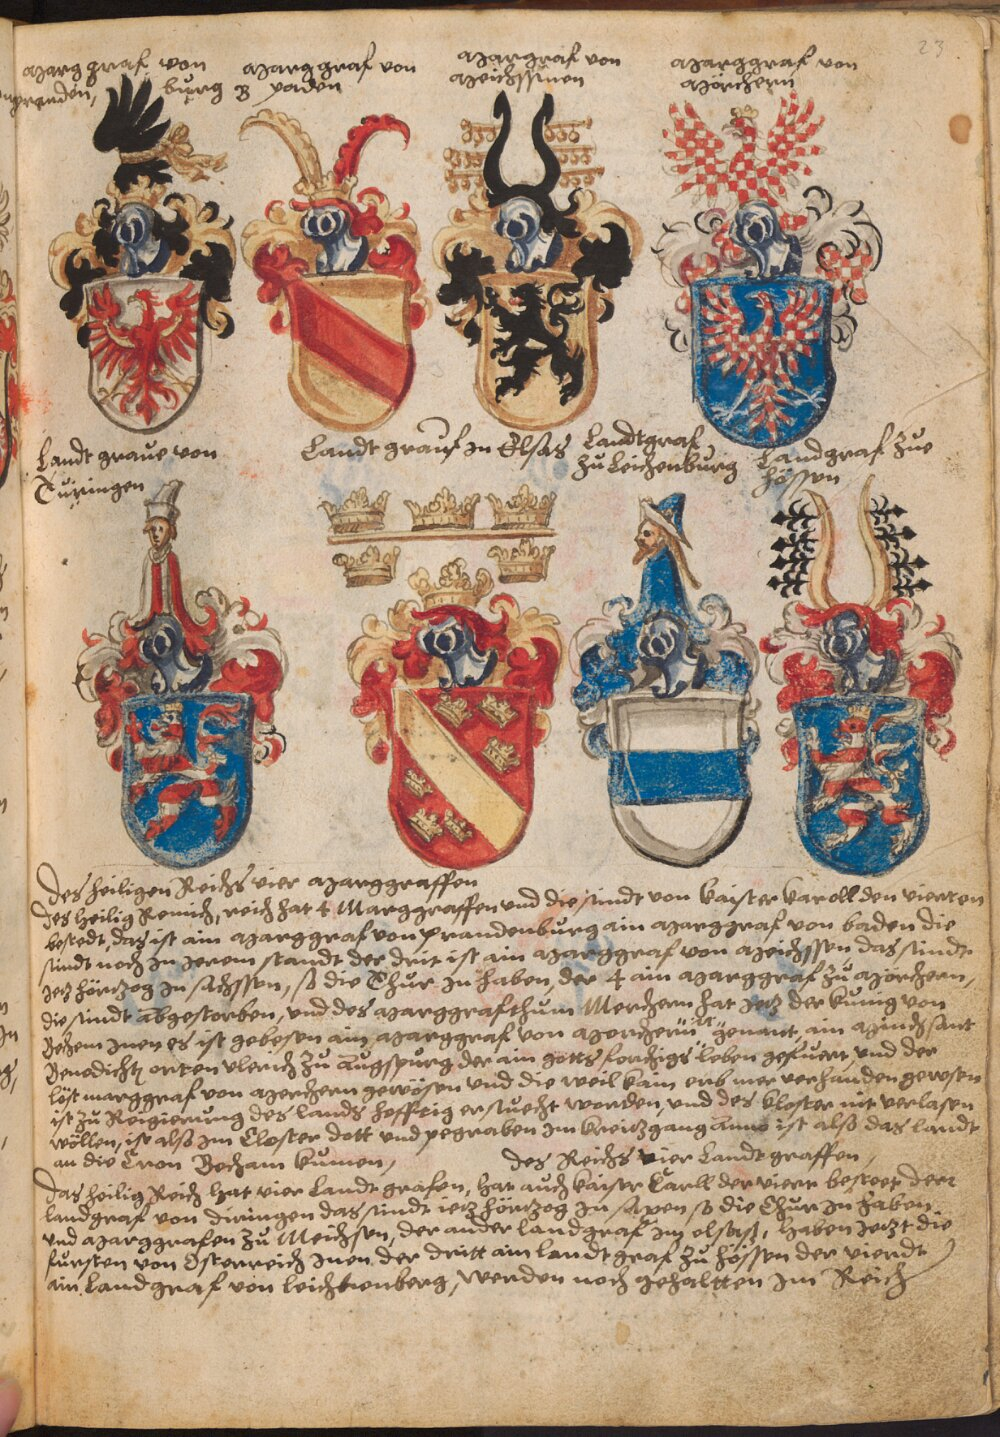 23
Marggraf von
prandenburg
Marggraf von
Baden
Margraf von
Meichssnen
Marggraf von
Mörchern
Landt graue von
Türingen
Landt grauf in Elsas
Landtgraf
zu Leichenburg
Landgraf zue
Hössen
Des heiligen Reichs vier Marggraffen
Des heilig Remich, reich hat 4 Marggraffen und die sindt von kaiser karoll den vierten
bestedt, das ist ain Marggraf von prandenburg ain Marggraf von baden die
sindt noch in jerem standt der drit ist ain Marggraf von Meichssen, das sindt
jetz hörtzog in sachssen, so die Chur in haben, der 4 ain Marggraf zu Mörchern,
die sindt abgestorben, und des Marggrafthum Merchern hat jetz der kunig von
Behem inen es ist gebesen ain Marggraf von Mercheren genant, ain
Benedichtz orten ulerich zu Augspurg der ain gotts forchtigs leben gefuert, und der
löst marggraf von Merchern gewösen und die weil kain erb mer verhanden gewesen
ist zu Regierung des lands hefftig ersuecht worden, und des kloster nit verlasen
wöllen, ist also im Closter dott und pegraben im kreitzgang anno ist also das landt
an die Cron Beham kumen,
Des Reichs vier Landt graffen,
Das heilig Reich hat vier Landt grafen, hat auch kaiser Carll der viert bestet der
landgraf von diringen das sindt jetz hörtzog in saxen so die Chur in haben
und Marggrafen zu Meichsen, der ander landgraf im elsas, haben jetzt die
fursten von Osterreich inen der dritt ain landt graf zu Hössen der vierdt
ain Landgraf von leichtenberg, werden noch gehaltten im Reich